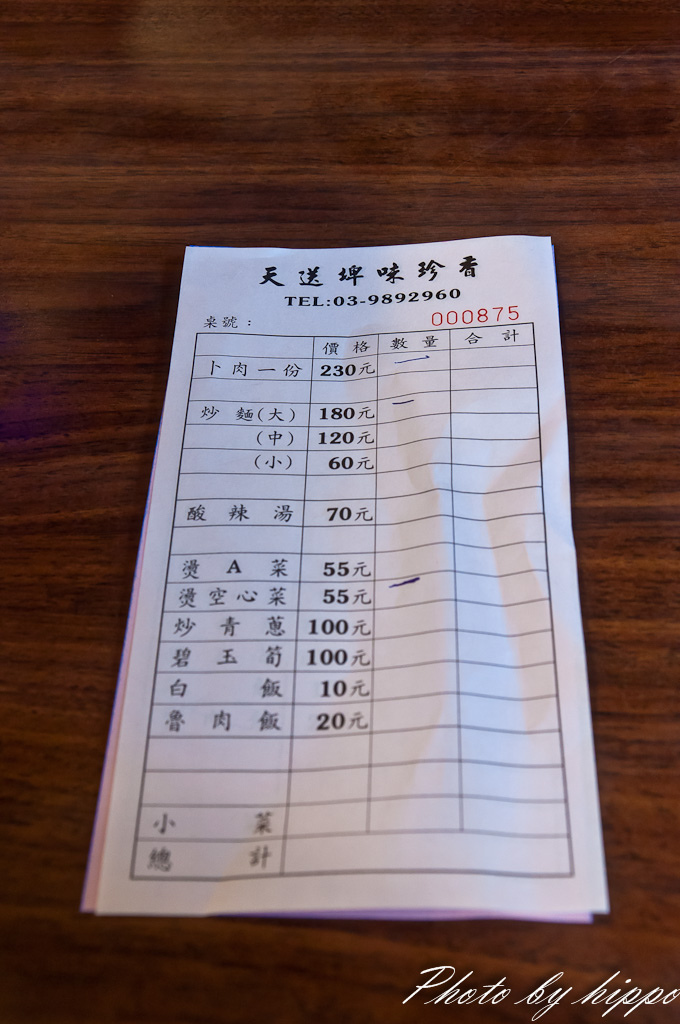 天送埤味珍香
TEL:03-9892960
桌號： 000875
價格 數量 合計
卜肉一份 230元 一
炒麵(大) 180元 一
(中) 120元
(小) 60元
酸辣湯 70元
燙A菜 55元
燙空心菜 55元 一
炒青蔥 100元
碧玉筍 100元
白飯 10元
魯肉飯 20元
小菜
總計
Photo by hippo